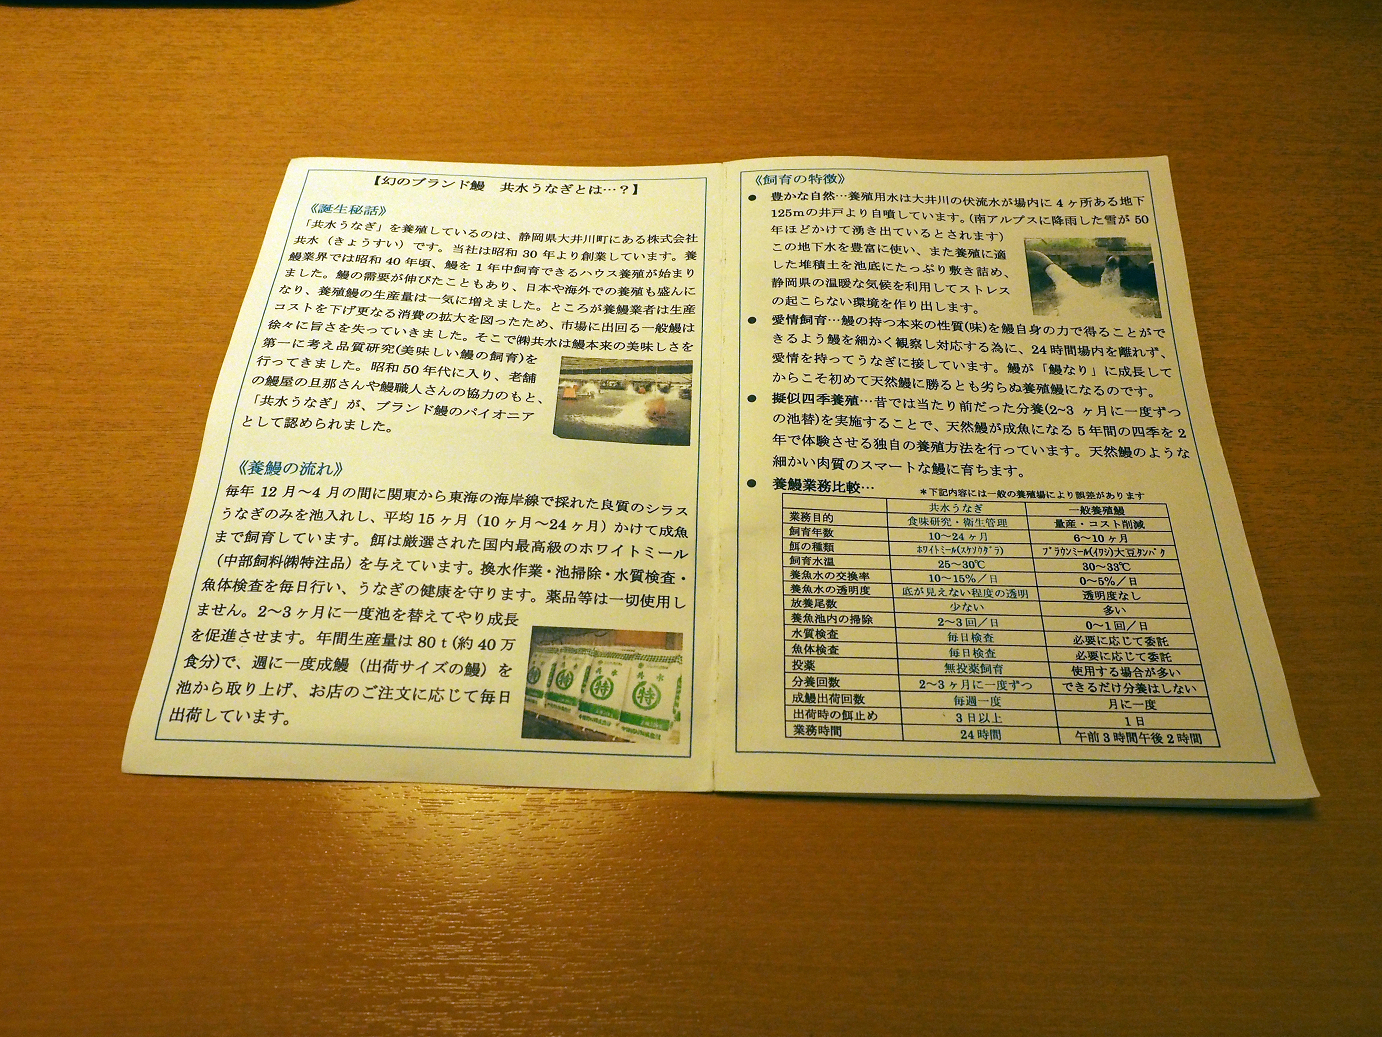 【幻のブランド鰻　共水うなぎとは…？】
《誕生秘話》
「共水うなぎ」を養殖しているのは、静岡県大井川町にある株式会社
共水（きょうすい）です。当社は昭和 30 年より創業しています。養
鰻業界では昭和 40 年頃、鰻を 1 年中飼育できるハウス養殖が始まり
ました。鰻の需要が伸びたこともあり、日本や海外での養殖も盛んに
なり、養殖鰻の生産量は一気に増えました。ところが養鰻業者は生産
コストを下げ更なる消費の拡大を図ったため、市場に出回る一般鰻は
徐々に旨さを失っていきました。そこで㈱共水は鰻本来の美味しさを
第一に考え品質研究(美味しい鰻の飼育)を
行ってきました。昭和 50 年代に入り、老舗
の鰻屋の旦那さんや鰻職人さんの協力のもと、
「共水うなぎ」が、ブランド鰻のパイオニア
として認められました。
《養鰻の流れ》
毎年 12 月～4 月の間に関東から東海の海岸線で採れた良質のシラス
うなぎのみを池入れし、平均 15 ヶ月（10 ヶ月～24 ヶ月）かけて成魚
まで飼育しています。餌は厳選された国内最高級のホワイトミール
（中部飼料㈱特注品）を与えています。換水作業・池掃除・水質検査・
魚体検査を毎日行い、うなぎの健康を守ります。薬品等は一切使用し
ません。2～3 ヶ月に一度池を替えてやり成長
を促進させます。年間生産量は 80ｔ(約 40 万
食分)で、週に一度成鰻（出荷サイズの鰻）を
池から取り上げ、お店のご注文に応じて毎日
出荷しています。
特
《飼育の特徴》
● 豊かな自然…養殖用水は大井川の伏流水が場内に 4 ヶ所ある地下
125ｍの井戸より自噴しています。(南アルプスに降雨した雪が 50
年ほどかけて湧き出ているとされます)
この地下水を豊富に使い、また養殖に適
した堆積土を池底にたっぷり敷き詰め、
静岡県の温暖な気候を利用してストレス
の起こらない環境を作り出します。
● 愛情飼育…鰻の持つ本来の性質(味)を鰻自身の力で得ることがで
きるよう鰻を細かく観察し対応する為に、24 時間場内を離れず、
愛情を持ってうなぎに接しています。鰻が「鰻なり」に成長して
からこそ初めて天然鰻に勝るとも劣らぬ養殖鰻になるのです。
● 擬似四季養殖…昔では当たり前だった分養(2~3 ヶ月に一度ずつ
の池替)を実施することで、天然鰻が成魚になる 5 年間の四季を 2
年で体験させる独自の養殖方法を行っています。天然鰻のような
細かい肉質のスマートな鰻に育ちます。
● 養鰻業務比較… ＊下記内容には一般の養殖場により誤差があります
共水うなぎ 一般養殖鰻
業務目的 食味研究・衛生管理 量産・コスト削減
飼育年数 10～24 ヶ月 6～10 ヶ月
餌の種類 ﾎﾜｲﾄﾐｰﾙ(ｽｹｿｳﾀﾞﾗ) ﾌﾞﾗｳﾝﾐｰﾙ(ｲﾜｼ)大豆ﾀﾝﾊﾟｸ
飼育水温 25～30℃ 30～33℃
養魚水の交換率 10～15%／日 0～5%／日
養魚水の透明度 底が見えない程度の透明 透明度なし
放養尾数 少ない 多い
養魚池内の掃除 2～3 回／日 0～1 回／日
水質検査 毎日検査 必要に応じて委託
魚体検査 毎日検査 必要に応じて委託
投薬 無投薬飼育 使用する場合が多い
分養回数 2～3 ヶ月に一度ずつ できるだけ分養はしない
成鰻出荷回数 毎週一度 月に一度
出荷時の餌止め 3 日以上 1 日
業務時間 24 時間 午前 3 時間午後 2 時間